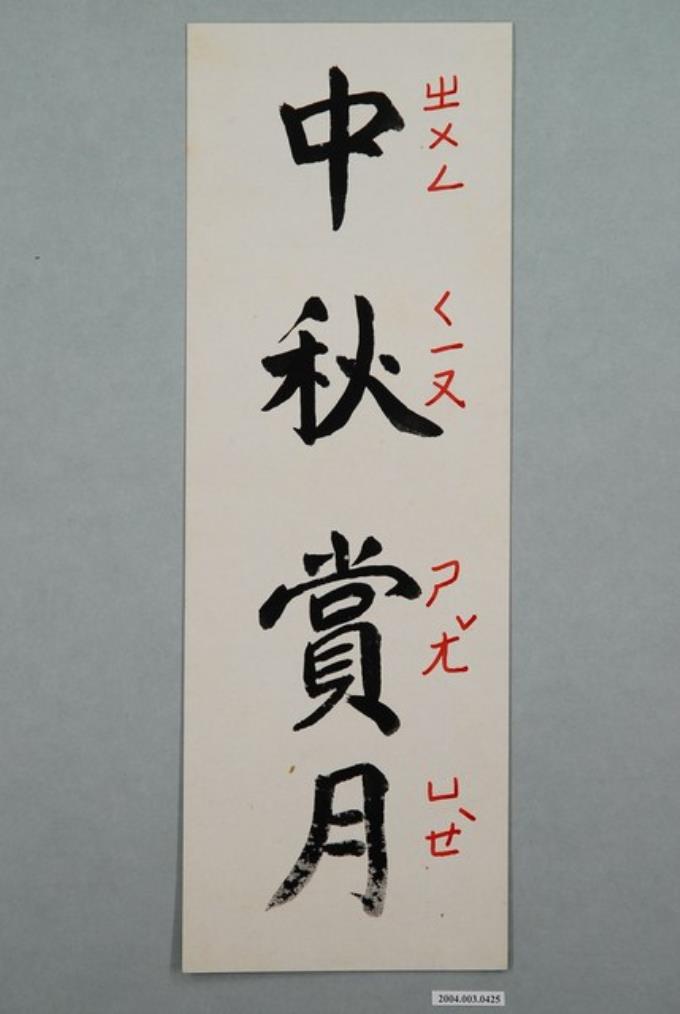 中秋賞月
ㄓㄨㄥ
ㄑㄧㄡ
ㄕㄤˇ
ㄩㄝˋ
2004.003.0425